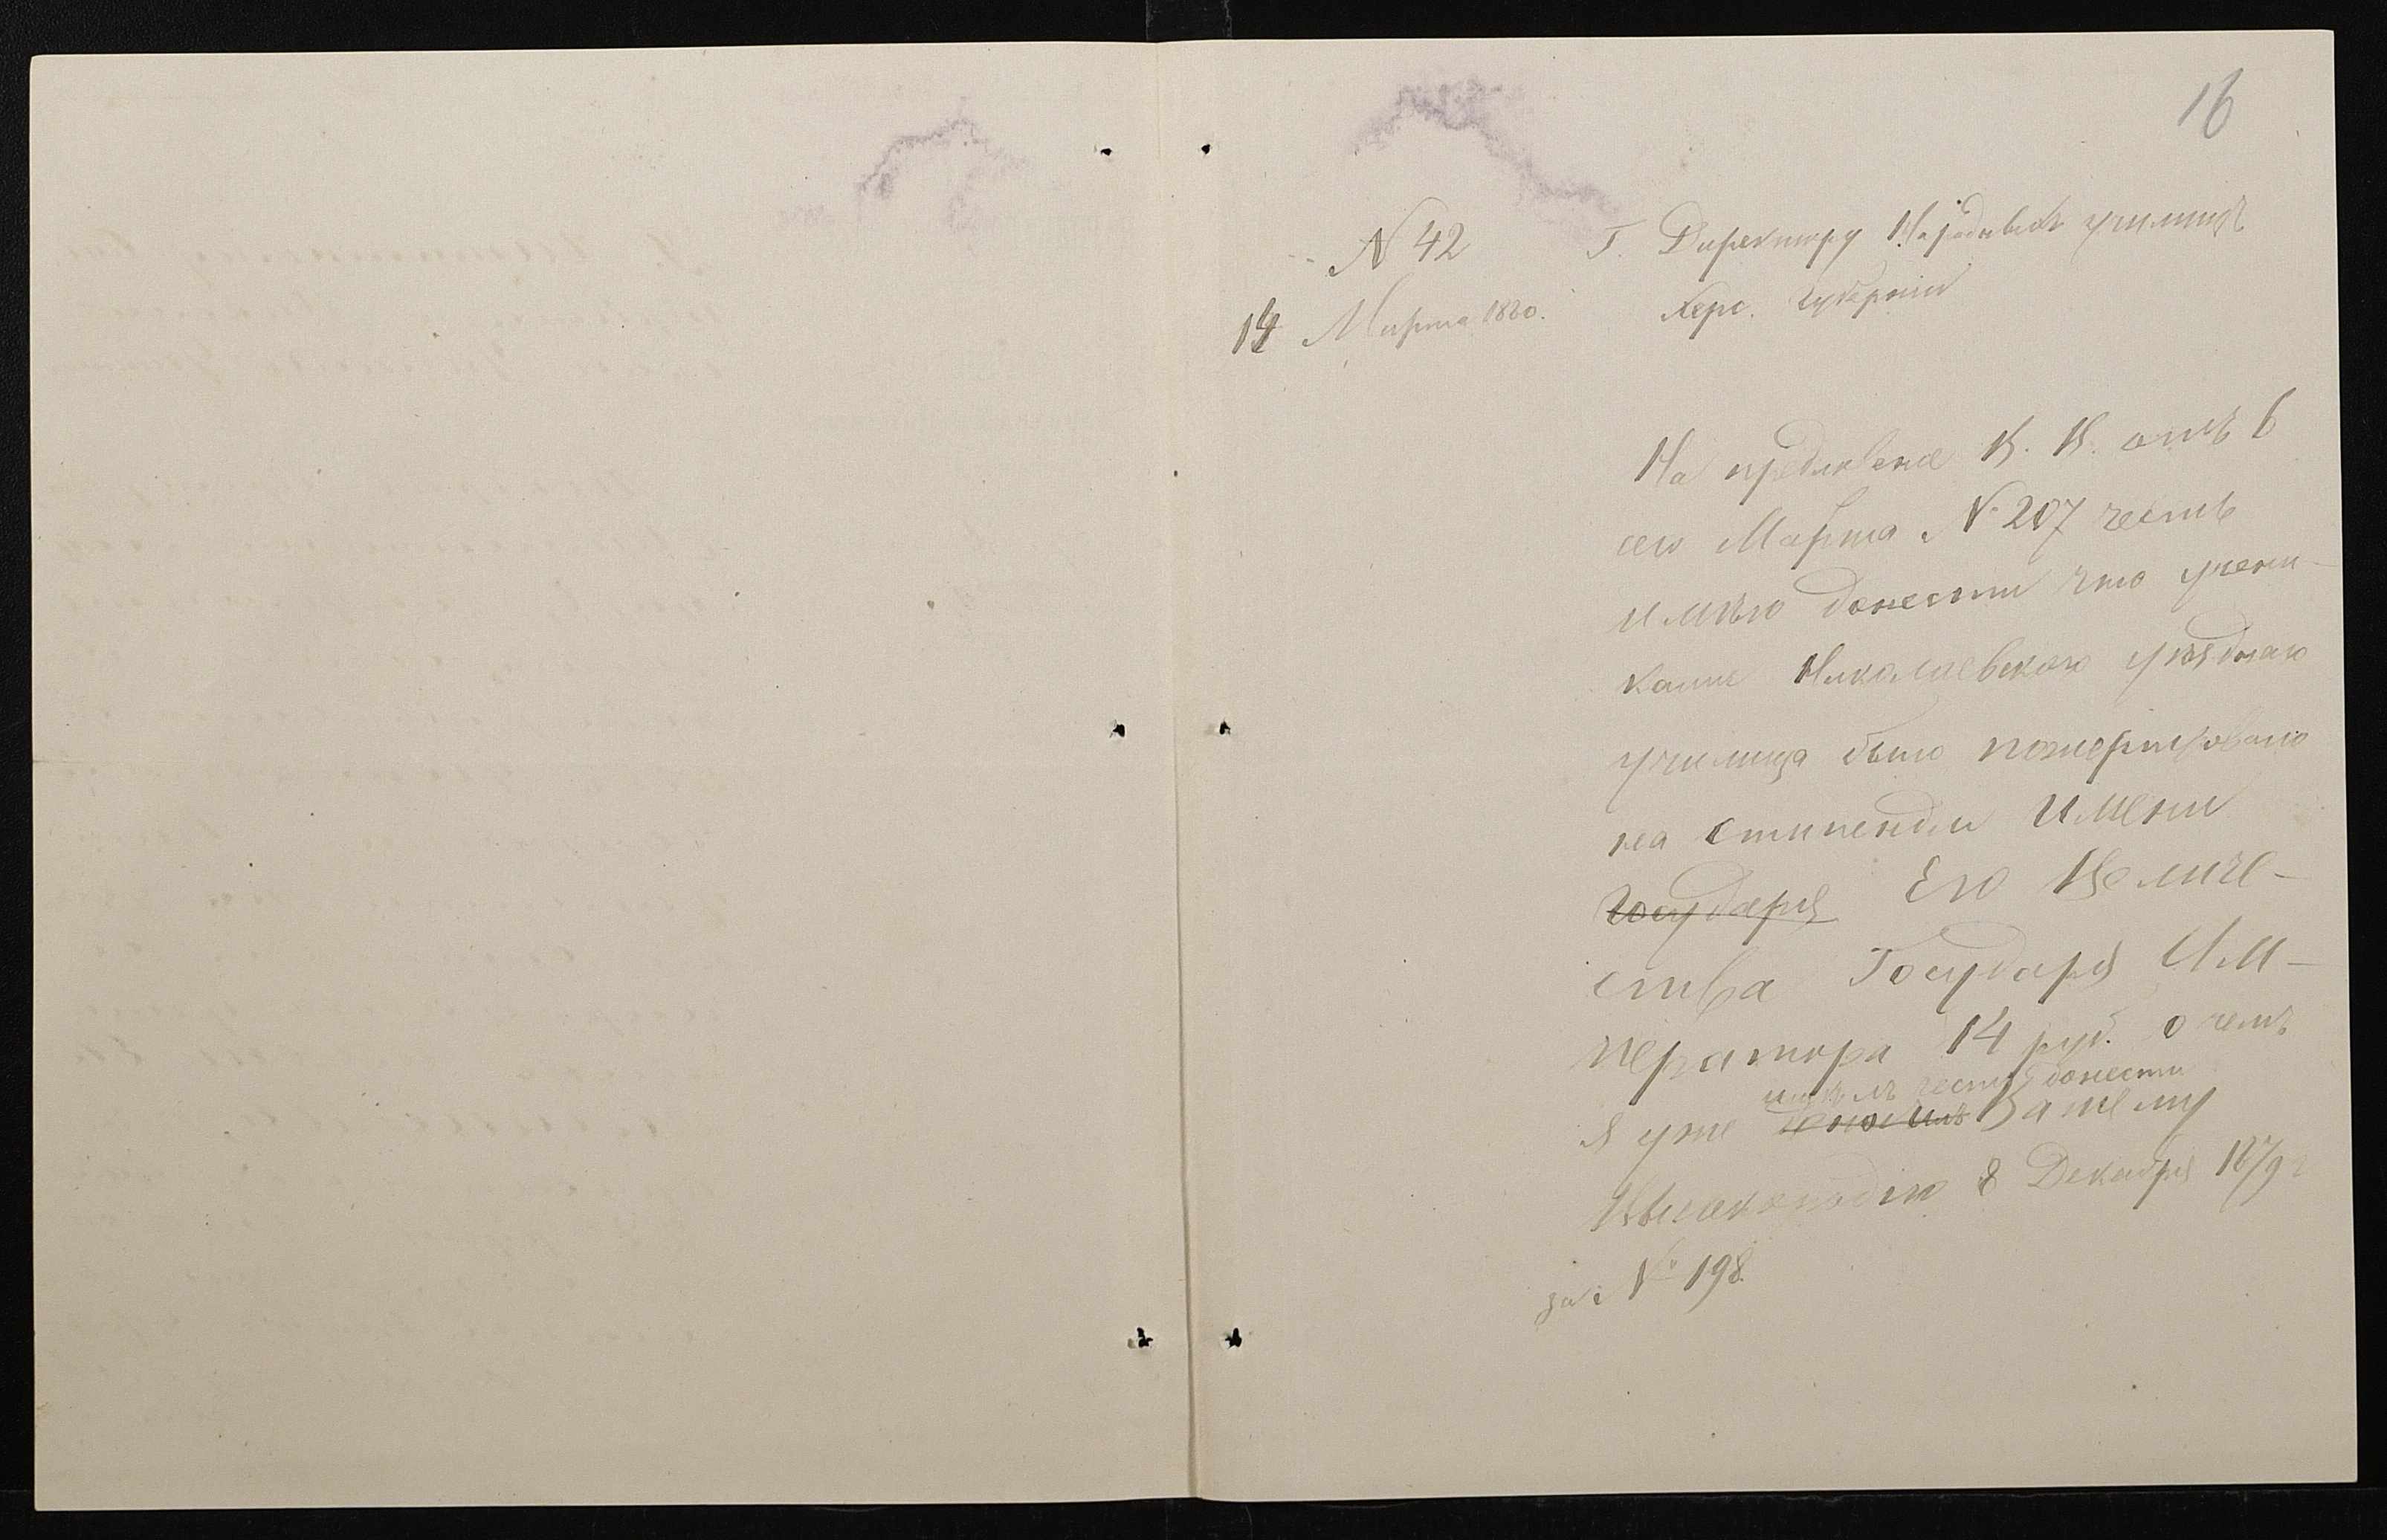 16
N 42
14 Марта 1880.
Г. Директору Народныхъ училищъ
Херс. Губернии
На предложение В. В. отъ 6
сего Марта № 207 честь
имѣю донести что учени-
ками Николаевского уѣздного
училища было пожертвовано
на стипендии Имени
Государя Его Величе-
ства Государя Им-
ператора 14 руб. о чемъ
имѣлъ честь донести
я уже доносилъ Вашему
Высокородію 8 Декабря 1879 г
за № 198